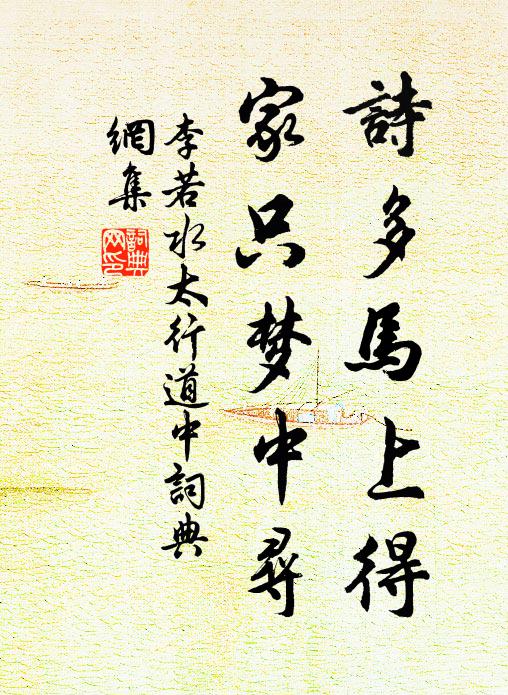 詩多馬上得
家只梦中尋
李若水太行道中詞典
網集
詞典
网印